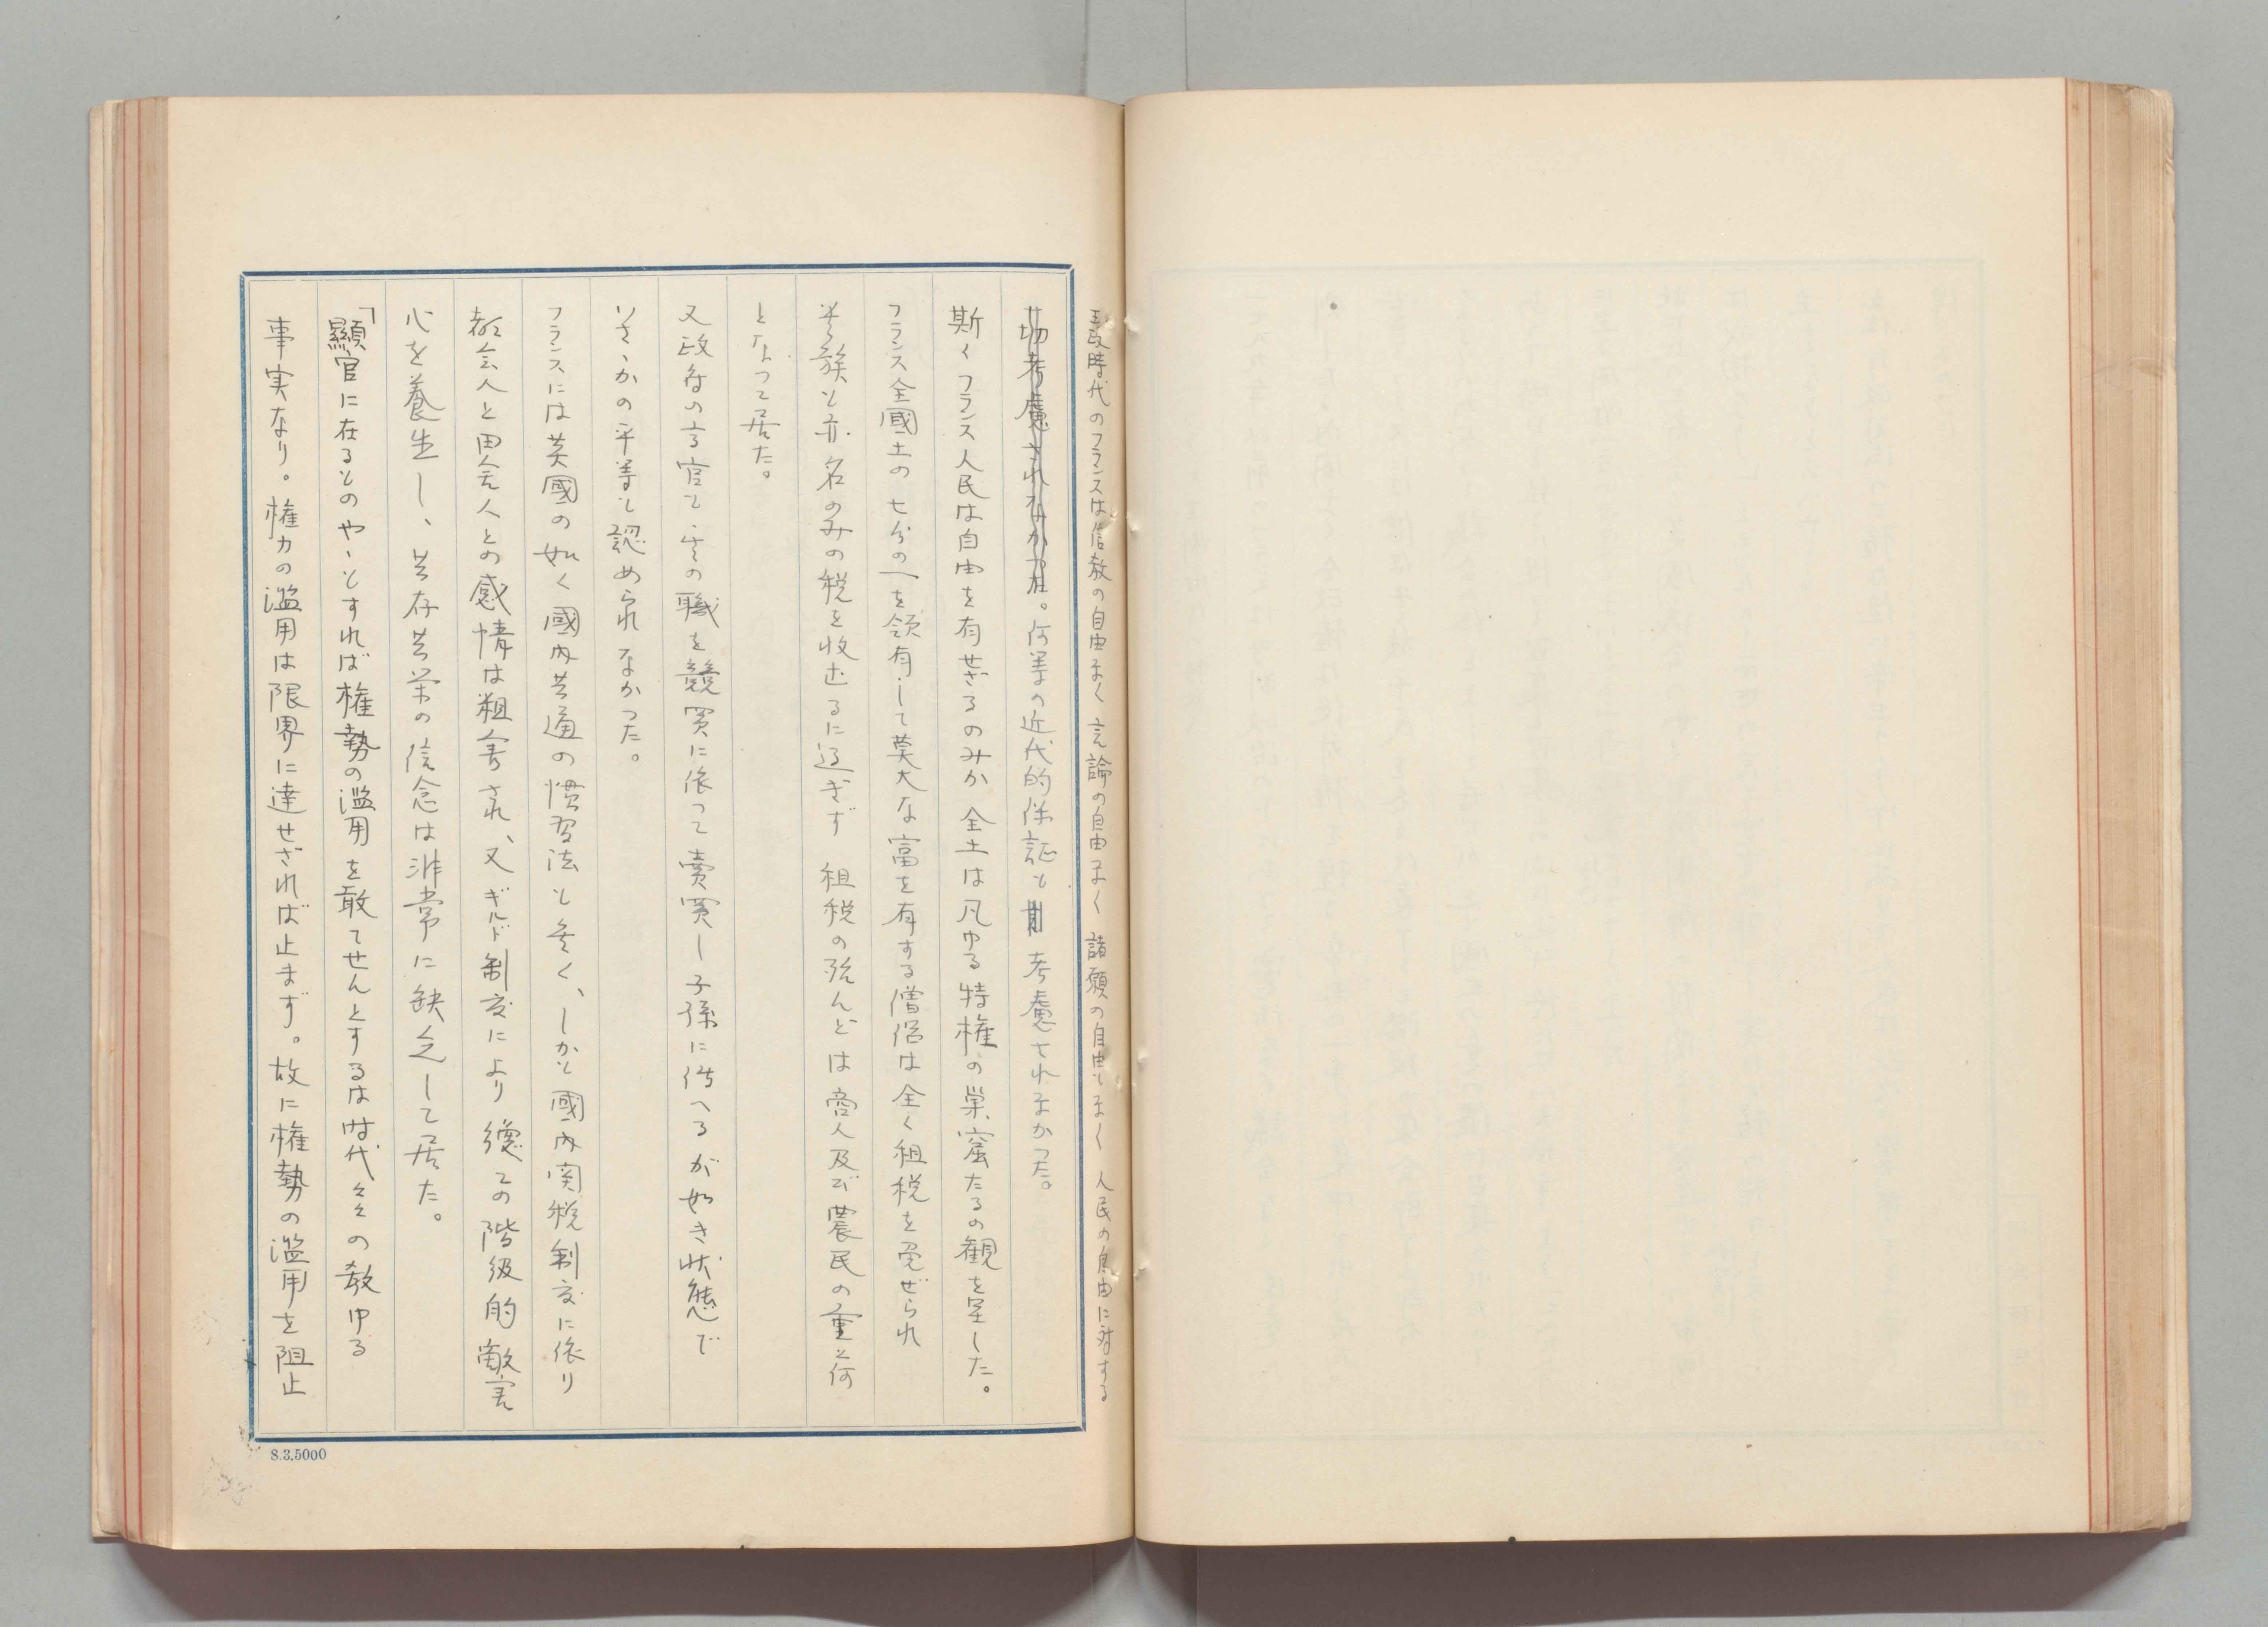 王政時代のフランスは信教の自由まく 言論の自由まく 請願の自由もまく 人民の自由に対する
切考慮されなかった。何等の近代的保証も 考慮されまかった。
斯くフランス人民は自由を有せざるのみか 全土は凡ゆる特権の巣窟たるの観を呈した。
フランス全國土の七分の一を領有して莫大な富を有する僧侶は全く租税を免ぜられ
貴族も亦名のみの税を收むるに過ぎず 租税の殆んどは商人及び農民の重荷
となって居た。
又政府の高官も其の職を競買に依って賣買し子孫に傳へるが如き状態で
いさゝかの平等も認められなかった。
フランスには英國の如く國内共通の慣習法も無く、しかも國内関税制度に依り
都会人と田舎人との感情は粗害され、又ギルド制度により總ての階級的敵害
心を養生し、共存共栄の信念は非常に缺乏して居た。
「顯官に在るものやゝもすれば権勢の濫用を敢てせんとするは時代々々の教ゆる
事実なり。権力の濫用は限界に達せざれば止まず。故に権勢の濫用を阻止
S.3.5000